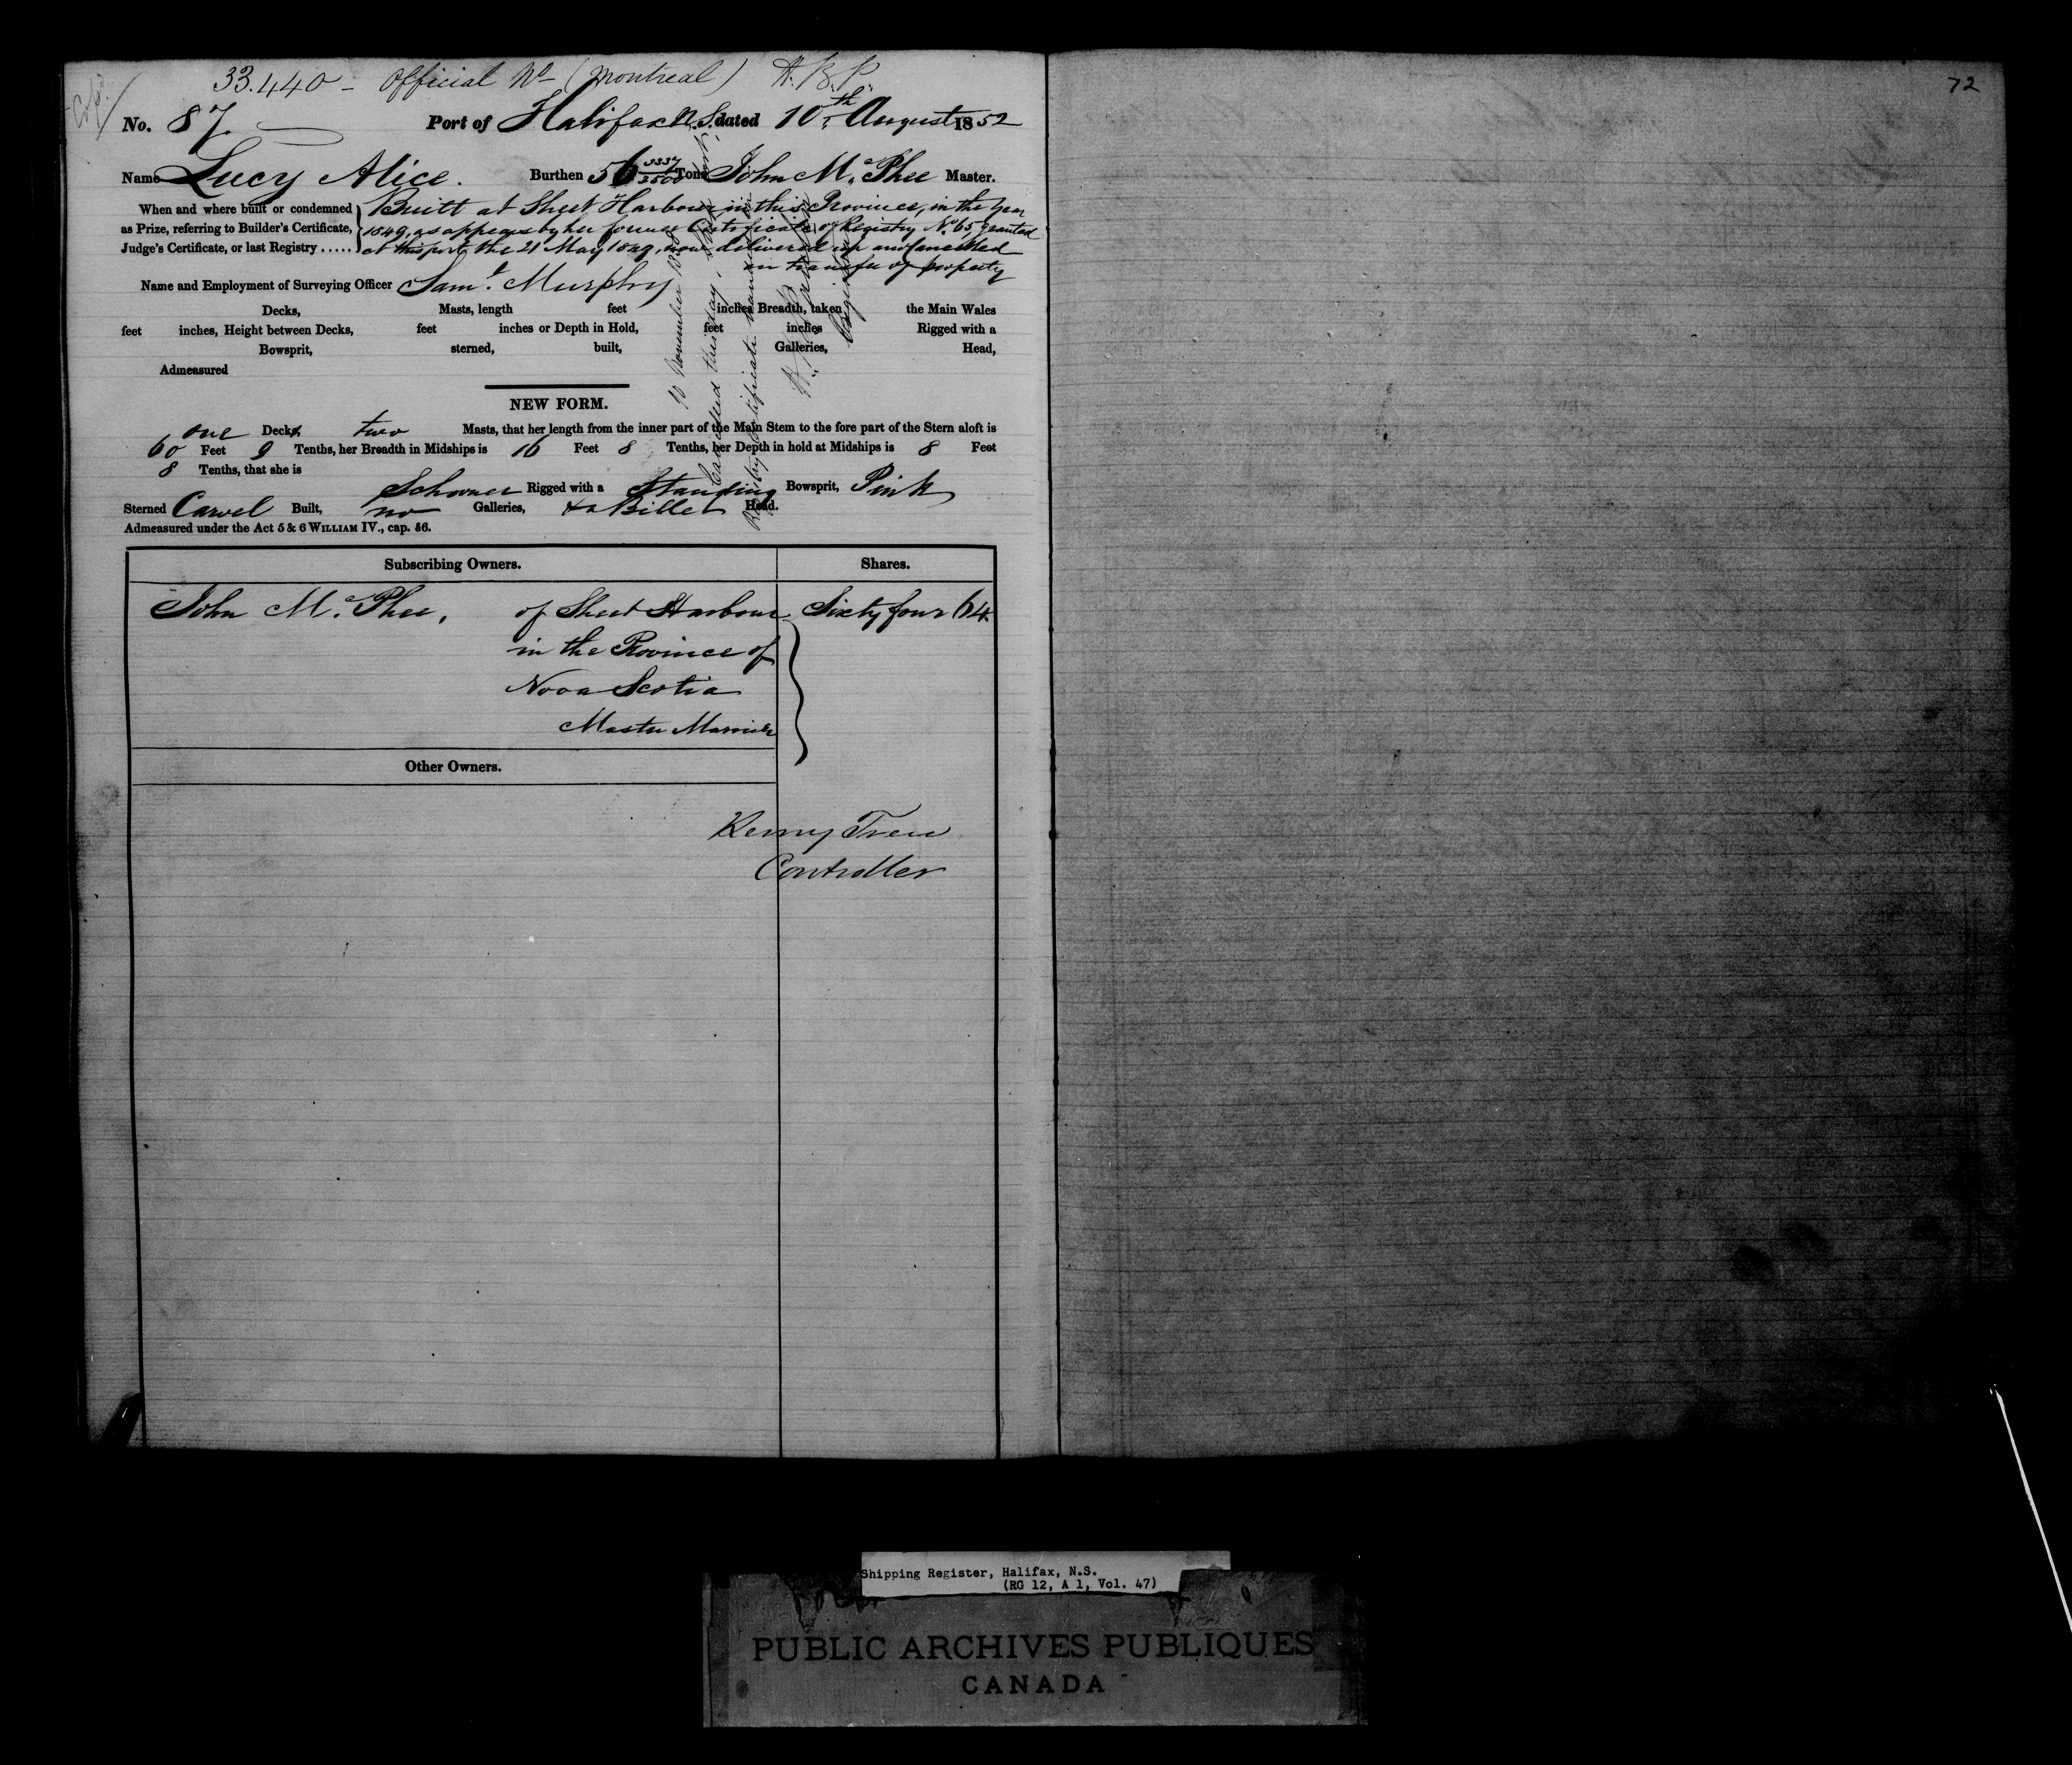 33.440 - Official No (Montreal) H.B.P.
No. 87. Port of Halifax N.S. dated 10th August 1852
Name Lucy Alice. Burthen 56 3337/3500 Tons John McPhee Master.
When and where built or condemned as Prize, referring to Builder's Certificate, Judge's Certificate, or last Registry .....
Built at Sheet Harbour in this Province, in the year
1849, as appears by her former Certificate of Registry No. 65, granted
at this port the 21 May 1849, now delivered up and cancelled
on transfer of property
Name and Employment of Surveying Officer Saml. Murphy
Decks, Masts, length feet inches Breadth, taken the Main Wales
feet inches, Height between Decks, feet inches or Depth in Hold, feet inches Rigged with a
Bowsprit, sterned, built, Galleries, Head,
Admeasured
10 November
Cancelled this day,
Registry Certificate
Registrar
NEW FORM.
one Decks, two Masts, that her length from the inner part of the Main Stem to the fore part of the Stern aloft is
60 Feet 9 Tenths, her Breadth in Midships is 16 Feet 8 Tenths, her Depth in hold at Midships is 8 Feet
8 Tenths, that she is
Schooner Rigged with a Standing Bowsprit, Pink
Sterned Carvel Built, no Galleries, & a Billet Head.
Admeasured under the Act 5 & 6 WILLIAM IV., cap. 56.
Subscribing Owners. Shares.
John McPhee, of Sheet Harbour Sixty four 64
in the Province of
Nova Scotia
Master Mariner
Other Owners.
Controller
72
Shipping Register, Halifax, N.S.
(RG 12, A 1, Vol. 47)
PUBLIC ARCHIVES PUBLIQUES
CANADA